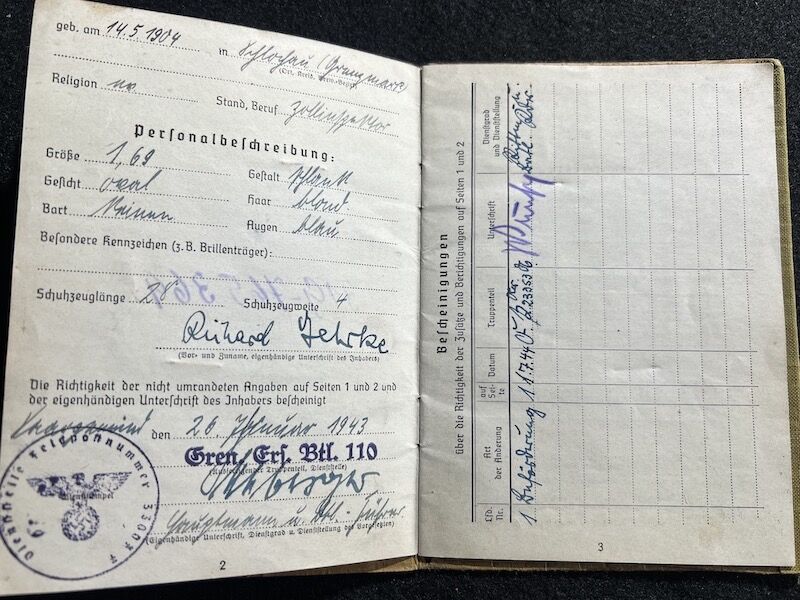 geb. am 14.5.1904 in Schlochau (Grenzmark)
(Ort, Kreis, Verw.-Bezirk)
Religion
Stand, Beruf Zollinspektor
Personalbeschreibung:
Größe 1,69 Gestalt schlank
Gesicht oval Haar blond
Bart keinen Augen blau
Besondere Kennzeichen (z. B. Brillenträger):
Schuhzeuglänge 28 Schuhzeugweite 4
Richard
(Vor- und Zuname, eigenhändige Unterschrift des Inhabers)
Die Richtigkeit der nicht umrandeten Angaben auf Seiten 1 und 2 und
der eigenhändigen Unterschrift des Inhabers bescheinigt
Saargemünd den 26. Januar 1943
Gren. Ers. Btl. 110
(Ausfertigender Truppenteil, Dienststelle)
Hauptmann u. Führer
(Eigenhändige Unterschrift, Dienstgrad u. Dienststellung des Vorgesetzten)
Dienststelle Feldpostnummer
Dienststempel
2
Bescheinigungen
über die Richtigkeit der Zusätze und Berichtigungen auf Seiten 1 und 2
Lfd. Nr.
Art der Änderung
auf Seite
Datum
Truppenteil
Unterschrift
Dienstgrad und Dienststellung
1 Beförderung 1 1.7.44
3